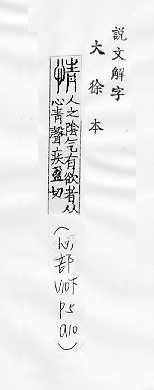 說文解字
大徐本
情
人之陰气有欲者从
心青聲疾盈切
（心部 V10下 P5 a10）